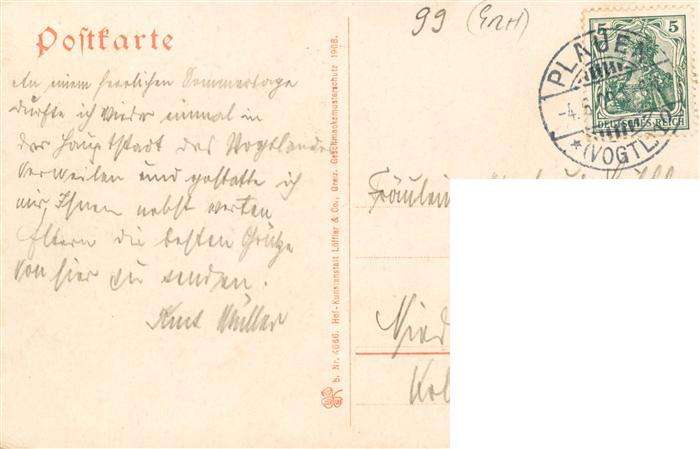 Postkarte
An einem herrlichen Sommertage
durfte ich wieder einmal in
der Hauptstadt des Vogtlandes
verweilen und gestatte ich
mir, Ihnen nebst werten
Eltern die besten Grüße
von hier zu senden.
Kurt Müller
b. Nr. 4066. Hof-Kunstanstalt Löffler & Co., Greiz. Geschmacksmusterschutz 1908.
99 (GRH)
5 5
DEUTSCHES REICH
PLAUEN
-4.6
*(VOGTL.)
Fräulein
Nied